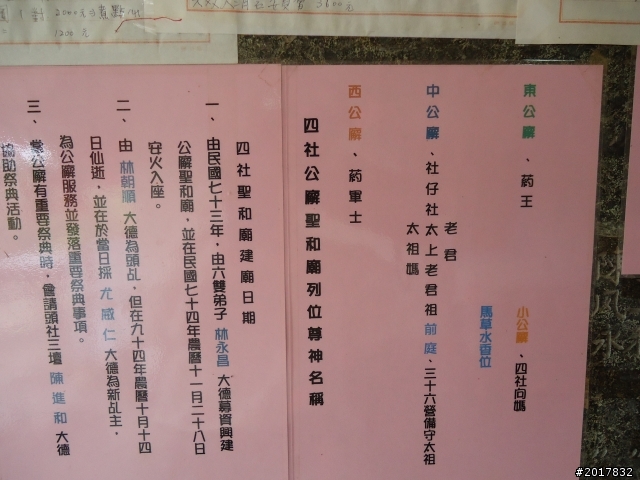 東公廨、葯王
小公廨、四社向媽
馬草水香位
老君
中公廨、社仔社太上老君祖前庭、三十六營備守太祖
太祖媽
西公廨、葯軍士
四社公廨聖和廟列位尊神名稱
四社聖和廟建廟日期
一、由民國七十三年，由六雙弟子林永昌大德募資興建
公廨聖和廟，並在民國七十四年農曆十一月二十八日
安火入座。
二、由林朝順大德為頭乩，但在九十四年農曆十月十四
日仙逝，並在於當日採尤威仁大德為新乩主，
為公廨服務並發落重要祭典事項。
三、當公廨有重要祭典時，會請頭社三壇陳進和大德
協助祭典活動。
2000元
1200元
3600元
#2017832